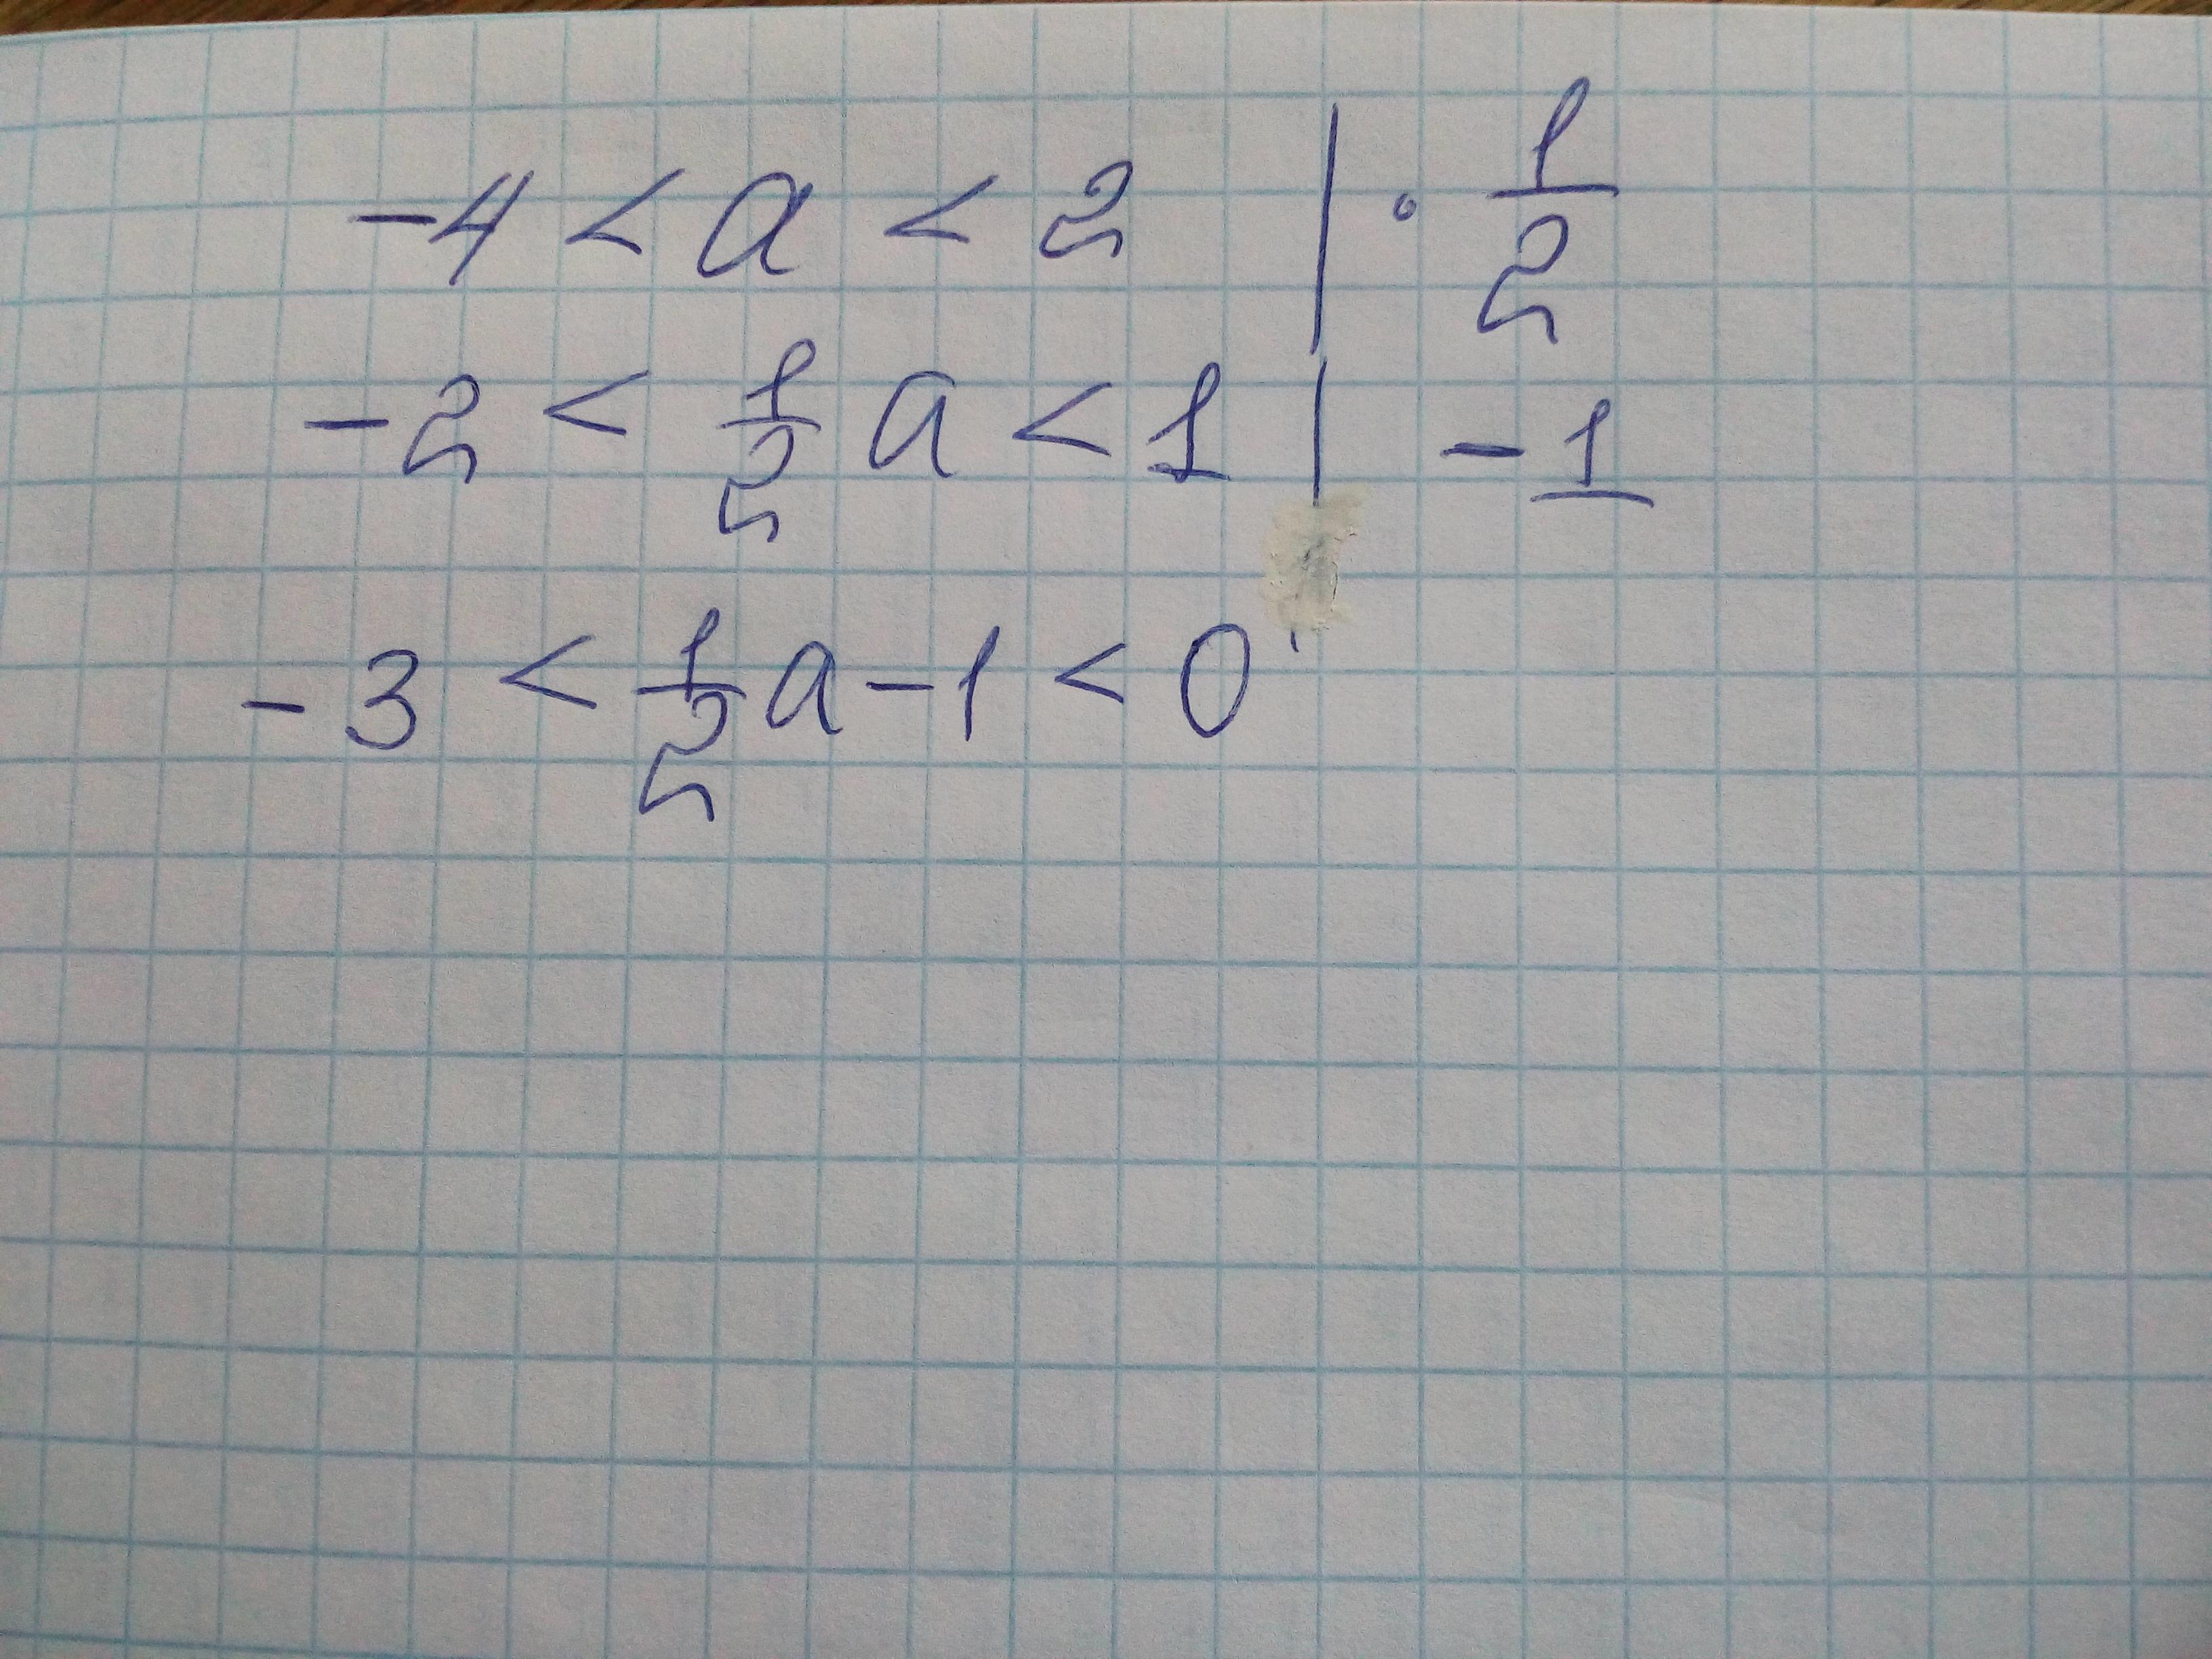 -4 < a < 2 | · 1/2
-2 < 1/2 a < 1 | -1
-3 < 1/2 a - 1 < 0